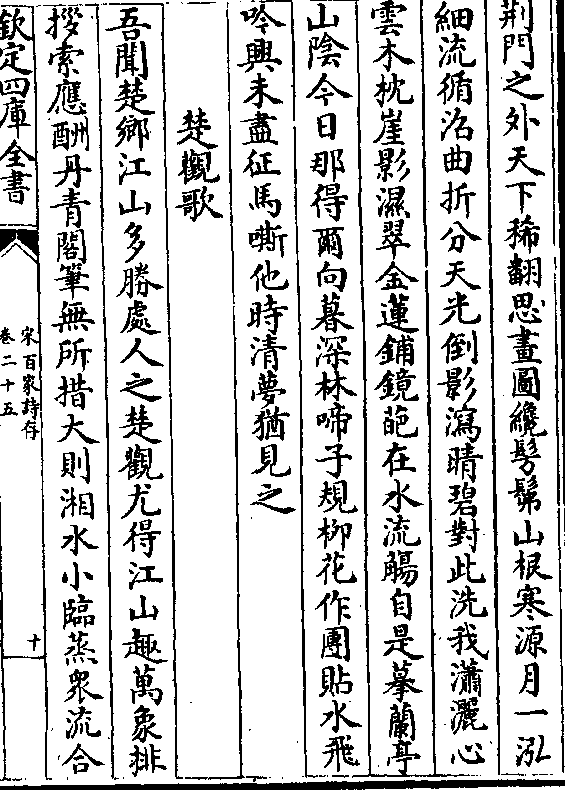 荆門之外天下稀翻思畫圖纔髣髴山根寒源月一泓
細流循㳂曲折分天光倒影瀉晴碧對此洗我瀟灑心
雲木枕崖影濕翠金蓮鋪鏡葩在水流觴自是摹蘭亭
山陰今日那得爾向暮深林啼子規柳花作團貼水飛
吟興未盡征馬嘶他時清夢猶見之
楚觀歌
吾聞楚鄉江山多勝處人之楚觀尤得江山趣萬象排
拶索應酬丹青閣筆無所措大則湘水小臨蒸衆流合
欽定四庫全書
宋百家詩存
卷二十五
十